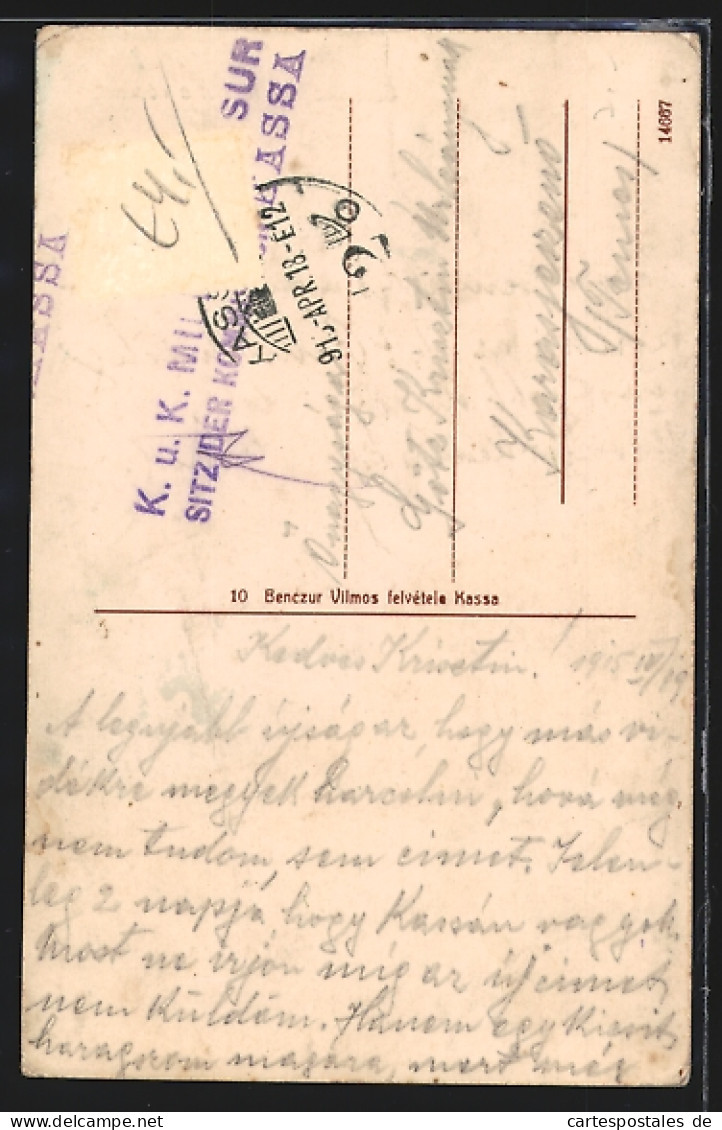 SUR
KASSA
KASSA
K. u. K. MIL
SITZ DER KOM
KASS
91.-APR.18.-E12
14667
Önagysága
Götz Krisztin Urleánynak
Karasjeszenő
/Temes/
10 Benczur Vilmos felvétele Kassa
Kedves Krisztin! 1915 IV/19
A legujabb ujság az, hogy más vi-
dékre megyek harcolni, hová még
nem tudom, sem cimet. Jelen-
leg 2 napja, hogy Kassán vagyok.
Most ne irjon mig az uj cimet
nem küldöm. Hanem egy kicsit
haragszom magára, mert még
© oldthing
cartespostales de